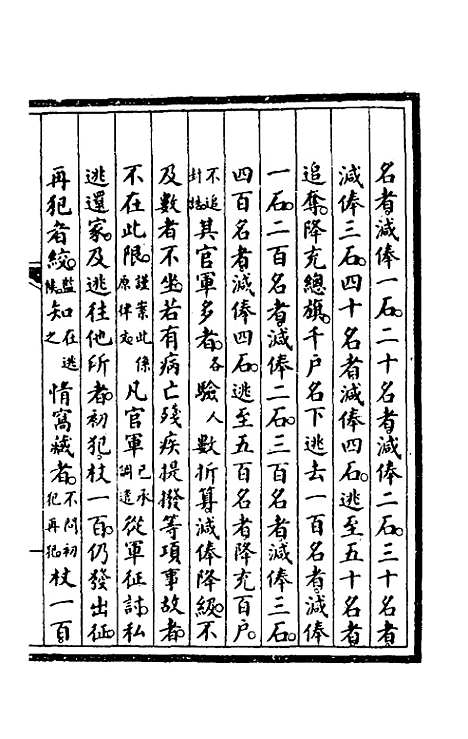 名者減俸一石二十名者減俸二石三十名者
減俸三石四十名者減俸四石逃至五十名者
追奪降充總旗千戶名下逃去一百名者減俸
一石二百名者減俸二石三百名者減俸三石
四百名者減俸四石逃至五百名者降充百戶
不追封誥其官軍多者各驗人數折算減俸降級不
及數者不坐若有病亡殘疾提撥等項事故者
不在此限謹案此係原律文凡官軍已承調遣從軍征討私
逃還家及逃往他所者初犯杖一百仍發出征
再犯者絞監候知在逃之情窩藏者不問初犯再犯杖一百